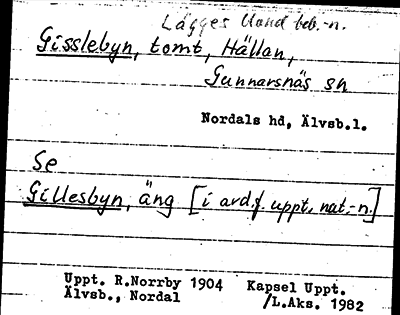 Lägges bland beb.-n.
Gisslebyn, tomt, Hällan,
Gunnarsnäs sn
Nordals hd, Älvsb.l.
Se
Gillesbyn, äng [i avd. f. uppt. nat.-n.]
Uppt. R.Norrby 1904 Kapsel Uppt.
Älvsb., Nordal /L.Aks. 1982